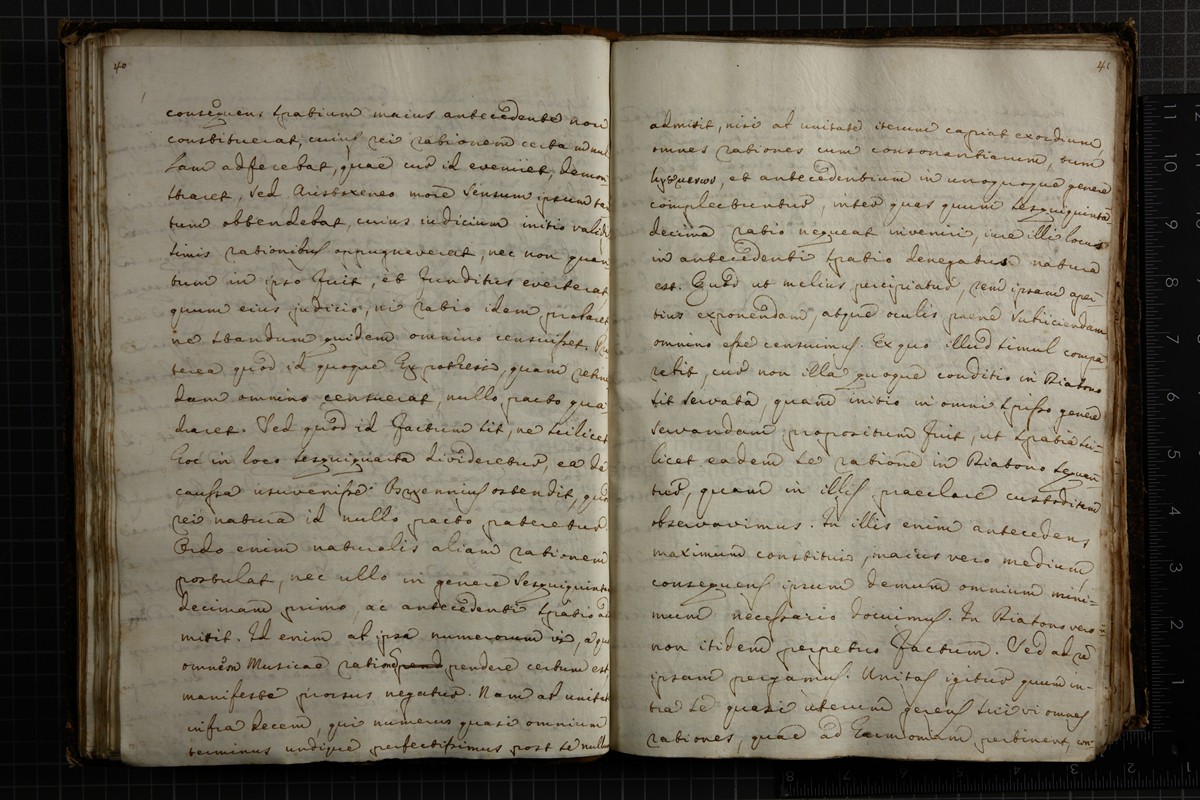 40
consequens spatium maius antecedente non
constituerat, cuius rei rationem certa nonnul
lam adferebat, quae cur id eveniret, demon
straret, sed Aristoxeneo more sensum ipsum ta
tum obtendebat, cuius iudicium initio validis
simis rationibus oppugnaverat, nec non quan
tum in ipso fuit, et funditus everterat,
quum eius judicio, ni ratio idem probaret
ne standum quidem omnino censuisset. Prae
terea quod id quoque Hypothesis, quam retinen
dam omnino censuerat, nullo pacto qua
draret. Sed quod id factum sit, ne scilicet
hoc in loco sesquiquarta divideretur, ea de
caussa usuvenisse Bryennius ostendit, quod
rei natura id nullo pacto pateretur
Ordo enim naturalis aliam rationem
postulat, nec ullo in genere sesquiquinta
decimam primo, ac antecedenti spatio ad
mittit. Id enim ab ipsa numerorum vi, a qua
omnem Musicae rationem pendere certum est,
manifeste prorsus negatur. Nam ab unitate
infra decem, qui numerus quasi omnium
terminus undique perfectissimus post se nullum
41
admittit, nisi ab unitate iterum capiat exordium,
omnes rationes cum consonantiarum, tum
ἡγουμενων, et antecedentium in unoquoque genere
complectuntur, inter quas quum sesquiquinta
decima ratio nequeat inveniri, iure illi locus
in antecedenti spatio denegatus natura
est. Quod ut melius percipiatur, rem ipsam aper
tius exponendam, atque oculis paene subiiciendam
omnino esse censuimus. Ex quo illud simul compa
rebit, cur non illa quoque conditio in Diatono
sit servata, quam initio in omni spisso genere
servandam propositum fuit, ut spatia sci-
licet eadem se ratione in Diatono sequan
tur, quam in illis praeclare custoditam
observavimus. In illis enim antecedens
maximum constitui, maius vero medium
consequens ipsum demum omnium mini-
mum necessario docuimus. In Diatono vero
non itidem perpetuo factum. Sed ad rem
ipsam pergamus. Unitas igitur quum in-
tra se quasi uterum gerens sui vi omnes
rationes, quae ad Harmoniam pertinent, con-